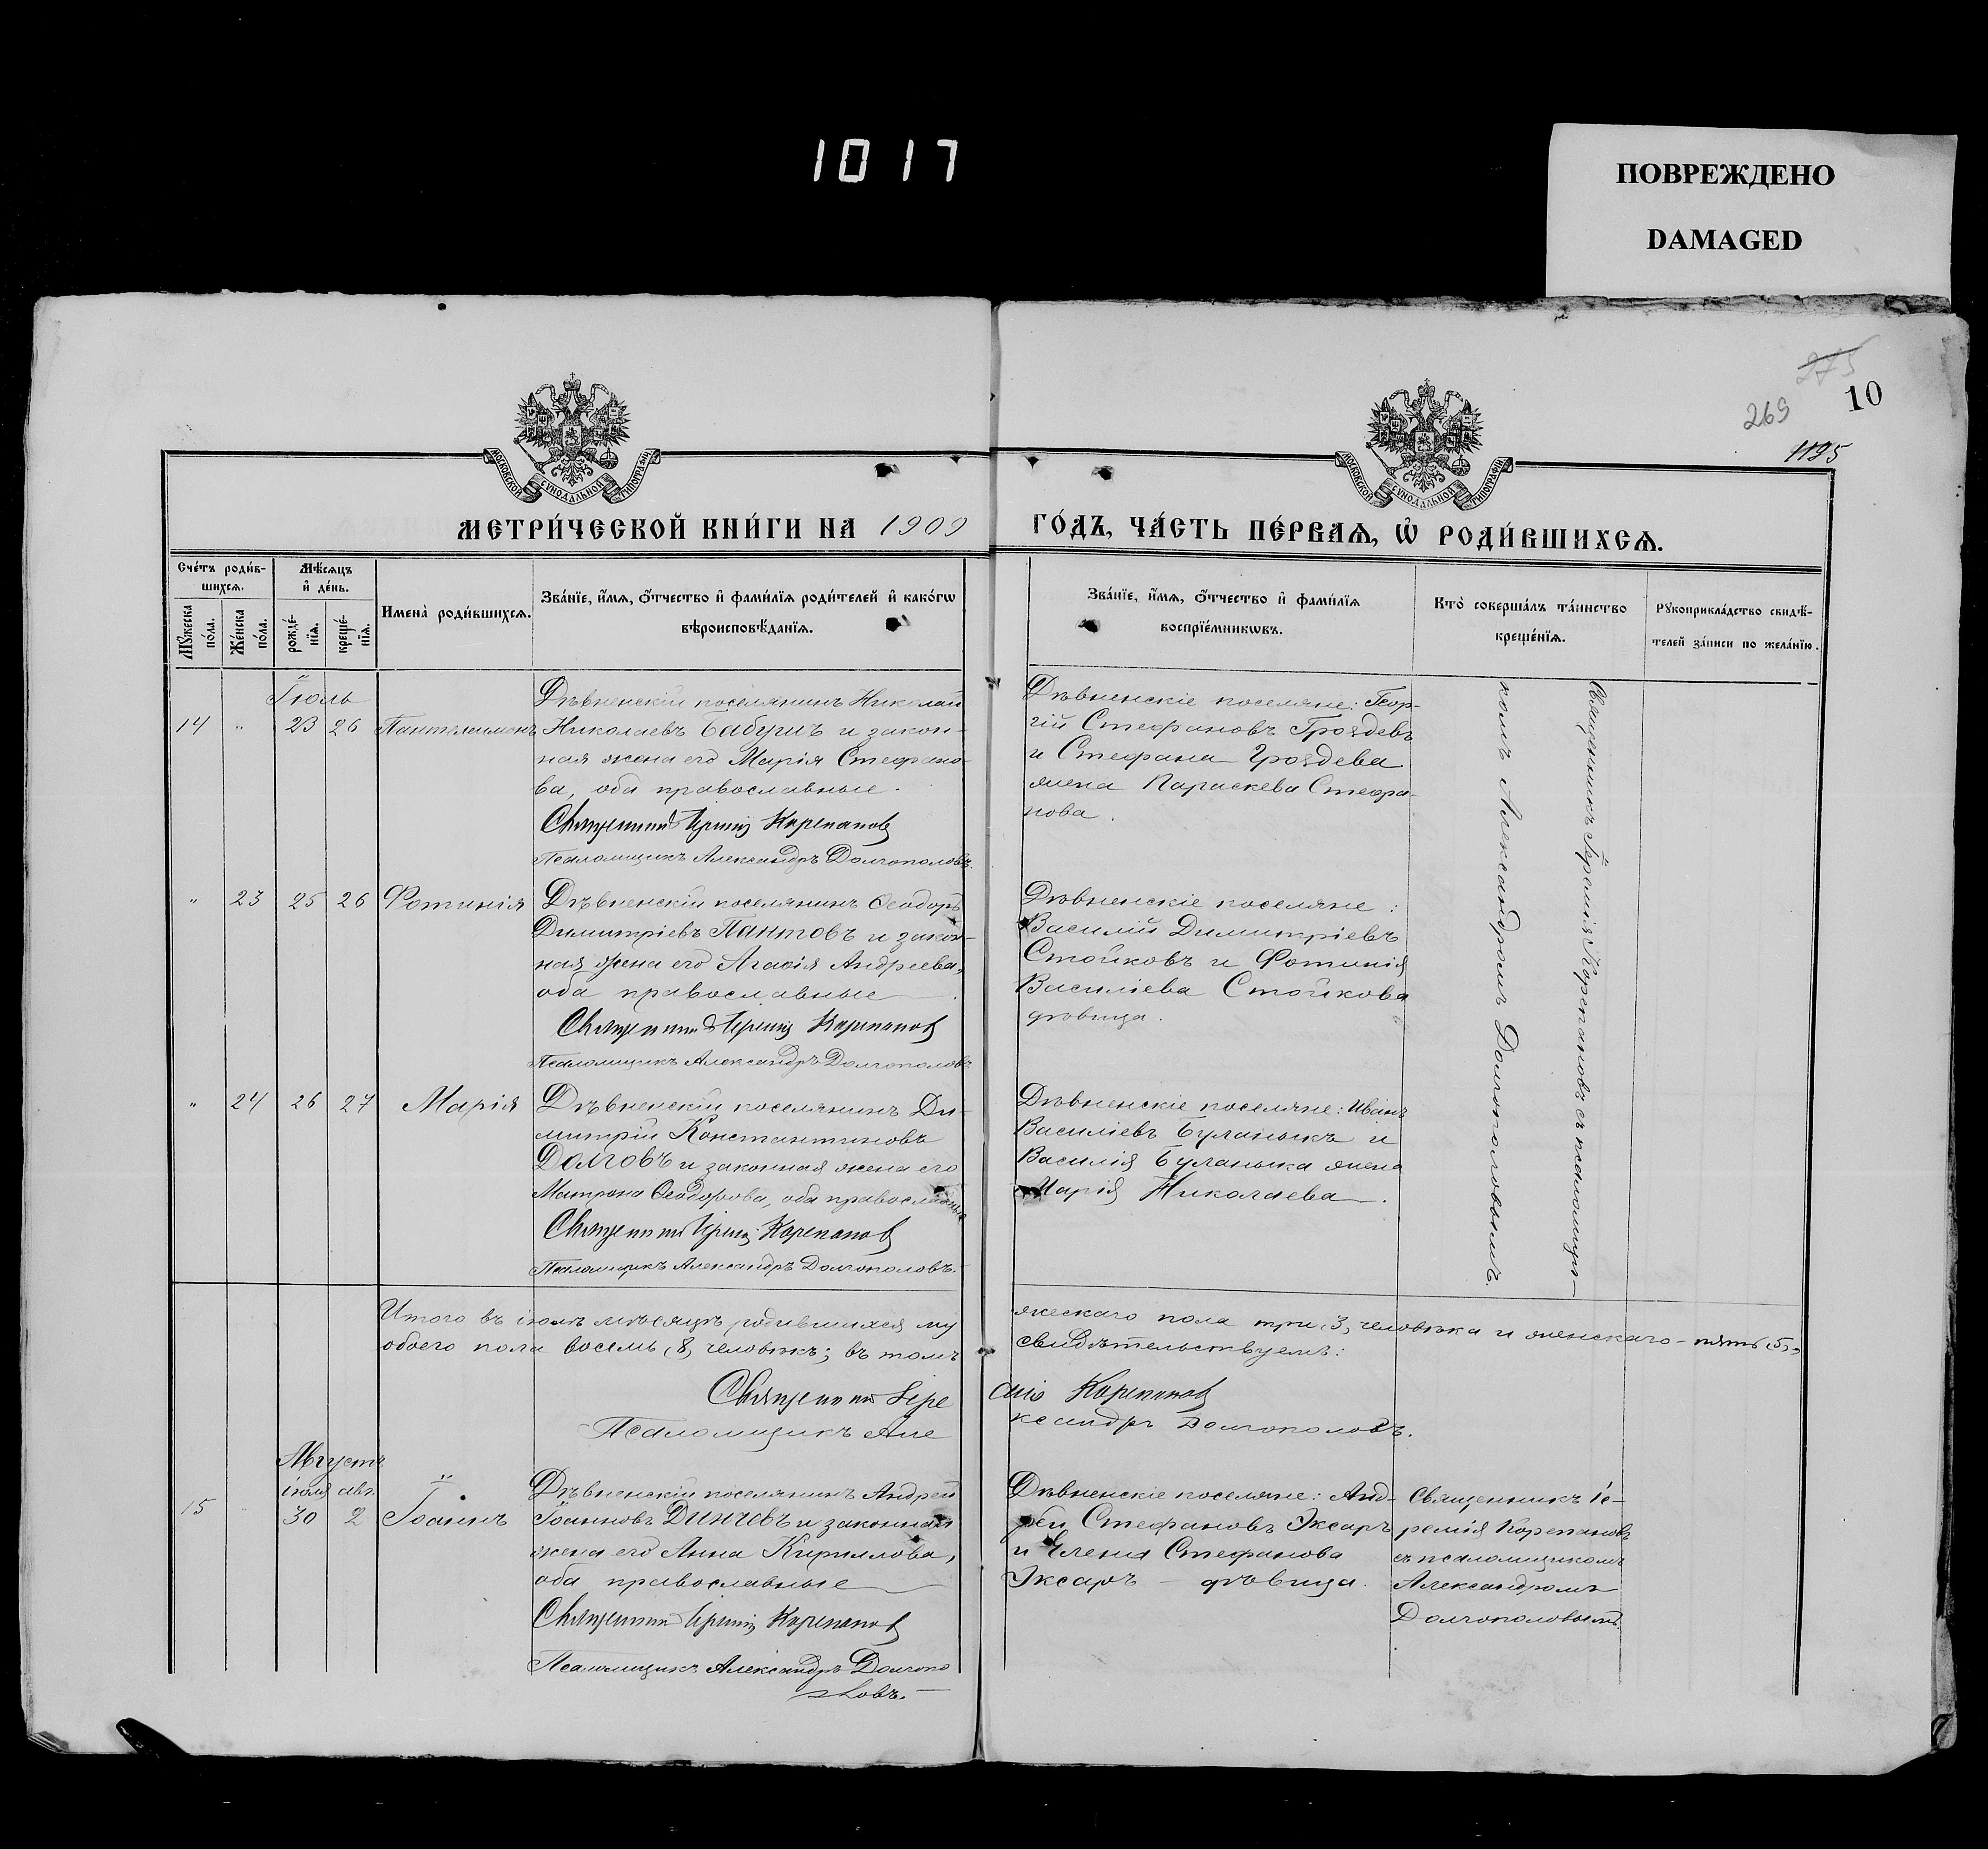 1017
ПОВРЕЖДЕНО
DAMAGED
275
269
10
1195
МОСКОВСКОЙ СѴНОДАЛЬНОЙ ТИПОГРАФІИ
МОСКОВСКОЙ СѴНОДАЛЬНОЙ ТИПОГРАФІИ
МЕТРИ́ЧЕСКОЙ КНИ́ГИ НА 1909
ГО́ДЪ, ЧА́СТЬ ПЕ́РВАѦ, Ѡ҆ РОДИ́ВШИХСѦ.
Сче́тъ роди́в-
шихсѧ.
Мꙋжеска по́ла.
Же́нска по́ла.
Мѣ́сѧцъ
и҆ де́нь.
рожде́-нїѧ.
креще́-нїѧ.
Имена̀ роди́вшихсѧ.
Зва́нїе, и҆́мѧ, ѻ҆́тчество и҆ фами́лїѧ роди́телей и҆ како́гѡ
вѣроисповѣ́данїѧ.
Зва́нїе, и҆́мѧ, ѻ҆́тчество и҆ фами́лїѧ
воспрїе́мникѡвъ.
Кто̀ соверша́лъ та́инство
креще́нїѧ.
Рꙋкоприкла́дство свидѣ́-
телей за́писи по жела́нїю.
Іюль
14 " 23 26 Пантелеимонъ
Дѣвненскій поселянинъ Николай
Николаевъ Бабучъ и закон-
ная жена его Марія Стефано-
ва, оба православные.
Священникъ Іеремія Корепановъ
Псаломщикъ Александръ Долгополовъ.
Дѣвненскіе поселяне: Геор-
гій Стефановъ Гроздевъ
и Стефана Гроздева
жена Параскева Стефа-
нова.
Священникъ Іеремія Корепановъ съ псаломщи-
комъ Александромъ Долгополовымъ.
" 23 25 26 Фотинія
Дѣвненскій поселянинъ Ѳеодоръ
Димитріевъ Пантовъ и закон-
ная жена его Агафія Андреева,
оба православные
Священникъ Іеремія Корепановъ
Псаломщикъ Александръ Долгополовъ
Дѣвненскіе поселяне:
Василій Димитріевъ
Стойковъ и Фотинія
Василіева Стойкова
дѣвица.
" 24 26 27 Марія
Дѣвненскій поселянинъ Ди-
митрій Константиновъ
Долговъ и законная жена его
Матрона Ѳеодорова, оба православные
Священникъ Іеремія Корепановъ
Псаломщикъ Александръ Долгополовъ.
Дѣвненскіе поселяне: Иванъ
Василіевъ Буланыкъ и
Василія Буланыка жена
Марія Николаева.
Итого въ іюлѣ мѣсяцѣ родившихся му
жескаго пола три, 3, человѣка и женскаго - пять, 5,
обоего пола восемь, 8, человѣкъ; въ томъ
свидѣтельствуемъ:
Священникъ Іере
мія Корепановъ
Псаломщикъ Але
ксандръ Долгополовъ.
Августъ
іюля авг.
15 " 30 2 Іоаннъ
Дѣвненскій поселянинъ Андрей
Іоанновъ Динговъ и законная
жена его Анна Кириллова,
оба православные
Священникъ Іеремія Корепановъ
Псаломщикъ Александръ Долгопо
ловъ.
Дѣвненскіе поселяне: Анд-
рей Стефановъ Эксаръ
и Елена Стефанова
Эксаръ - дѣвица.
Священникъ Іе-
ремія Корепановъ
съ псаломщикомъ
Александромъ
Долгополовымъ.